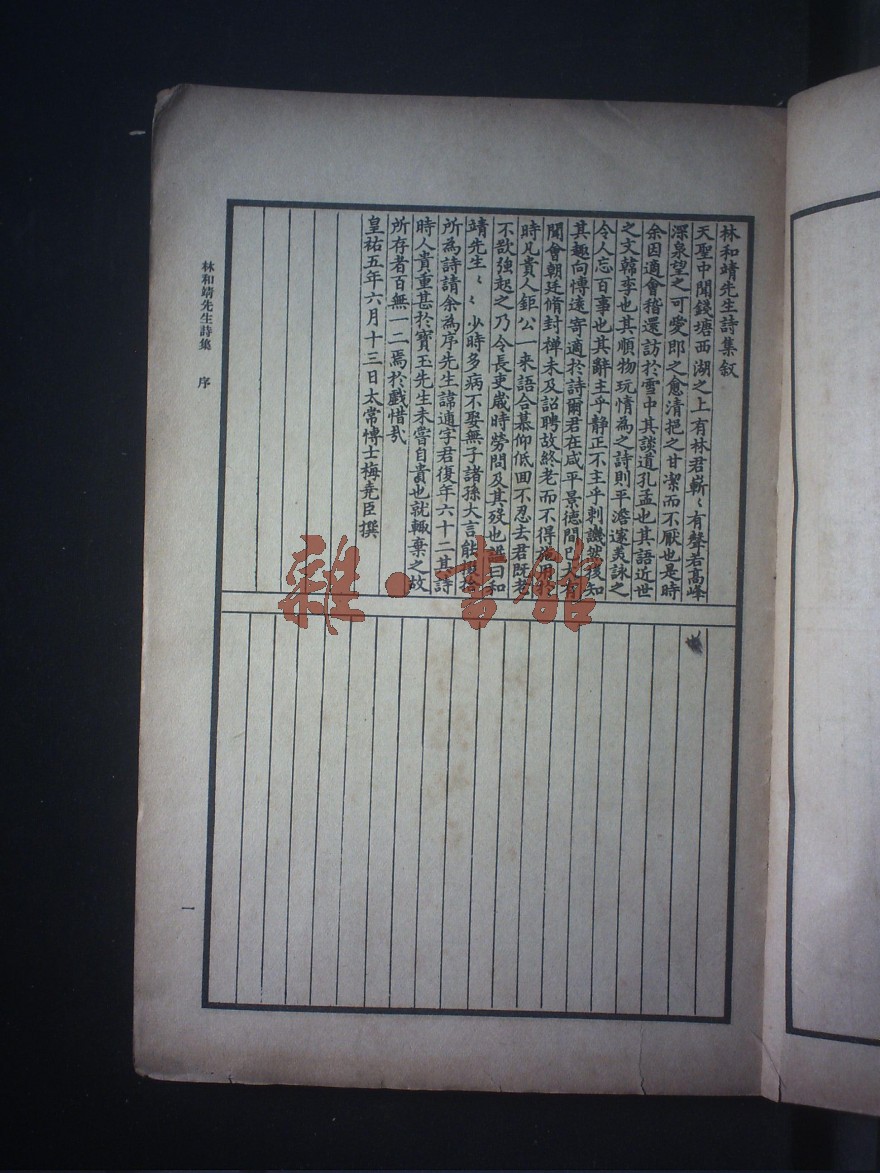 林和靖先生詩集叙
天聖中聞錢塘西湖之上有林君嶄〻有聲若高峰
深泉望之可愛即之愈清挹之甘潔而不厭也是時
余因適會稽還訪於雪中其談道孔孟也其語近世
之文韓李也其順物玩情為之詩則平澹邃美詠之
令人忘百事也其辭主乎静正不主乎刺譏然後知
其趣向博遠寄適於詩爾君在咸平景德間已大有
聞會朝廷脩封禅未及詔聘故終老而不得施用於
時凡貴人鉅公一来語合慕仰低回不忍去君既老
不欲強起之乃令長吏歳時勞問及其歿也諡曰和
靖先生〻〻少時多病不娶無子諸孫大言能掇拾
所為詩請余為序先生諱逋字君復年六十二其詩
時人貴重甚於寳玉先生未嘗自貴也就輙棄之故
所存者百無一二焉於戲惜哉
皇祐五年六月十三日太常博士梅堯臣撰
林和靖先生詩集 序
一
雜·書館